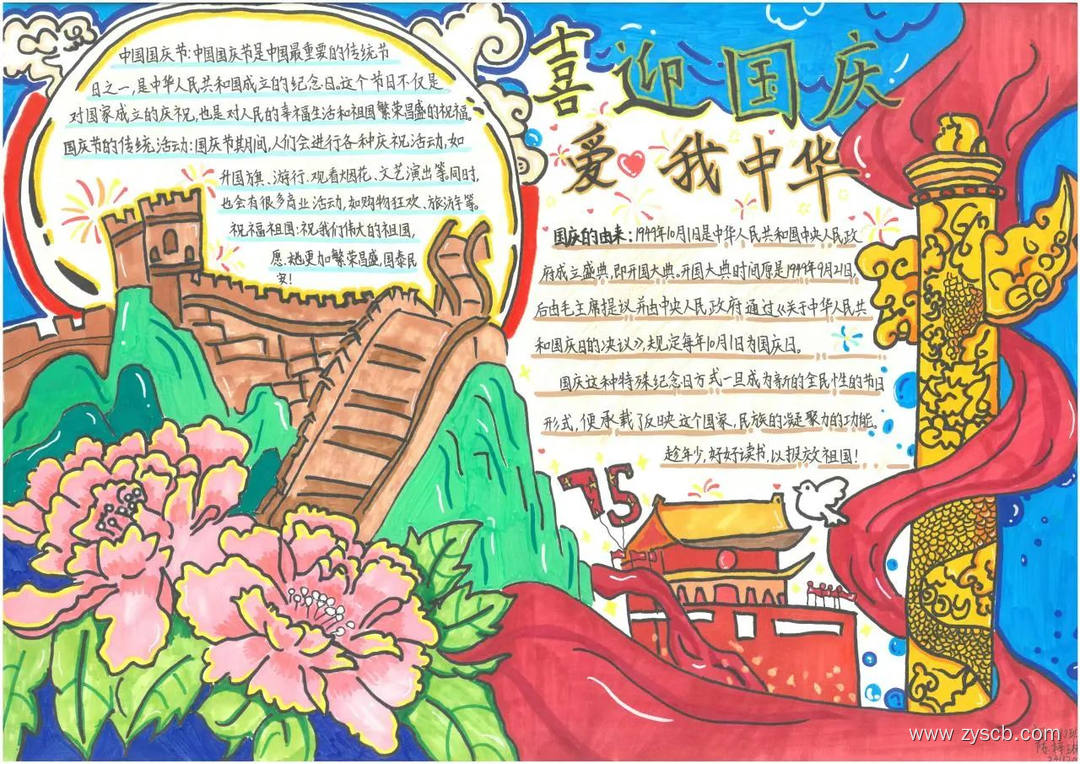 中国国庆节:中国国庆节是中国最重要的传统节
日之一,是中华人民共和国成立的纪念日。这个节日不仅是
对国家成立的庆祝,也是对人民的幸福生活和祖国繁荣昌盛的祝福。
国庆节的传统活动:国庆节期间,人们会进行各种庆祝活动,如
升国旗、游行、观看烟花、文艺演出等。同时,
也会有很多商业活动,如购物狂欢、旅游等。
祝福祖国:祝我们伟大的祖国,
愿她更加繁荣昌盛,国泰民
安!
喜迎国庆
爱我中华
国庆的由来:1949年10月1日是中华人民共和国中央人民政
府成立盛典,即开国大典。开国大典时间原是1949年9月21日,
后由毛主席提议并由中央人民政府通过《关于中华人民共
和国国庆日的决议》,规定每年10月1日为国庆日。
国庆这种特殊纪念日方式一旦成为新的全民性的节日
形式,便承载了反映这个国家、民族的凝聚力的功能。
趁年少,好好读书,以报放祖国!
75
www.zyscb.com